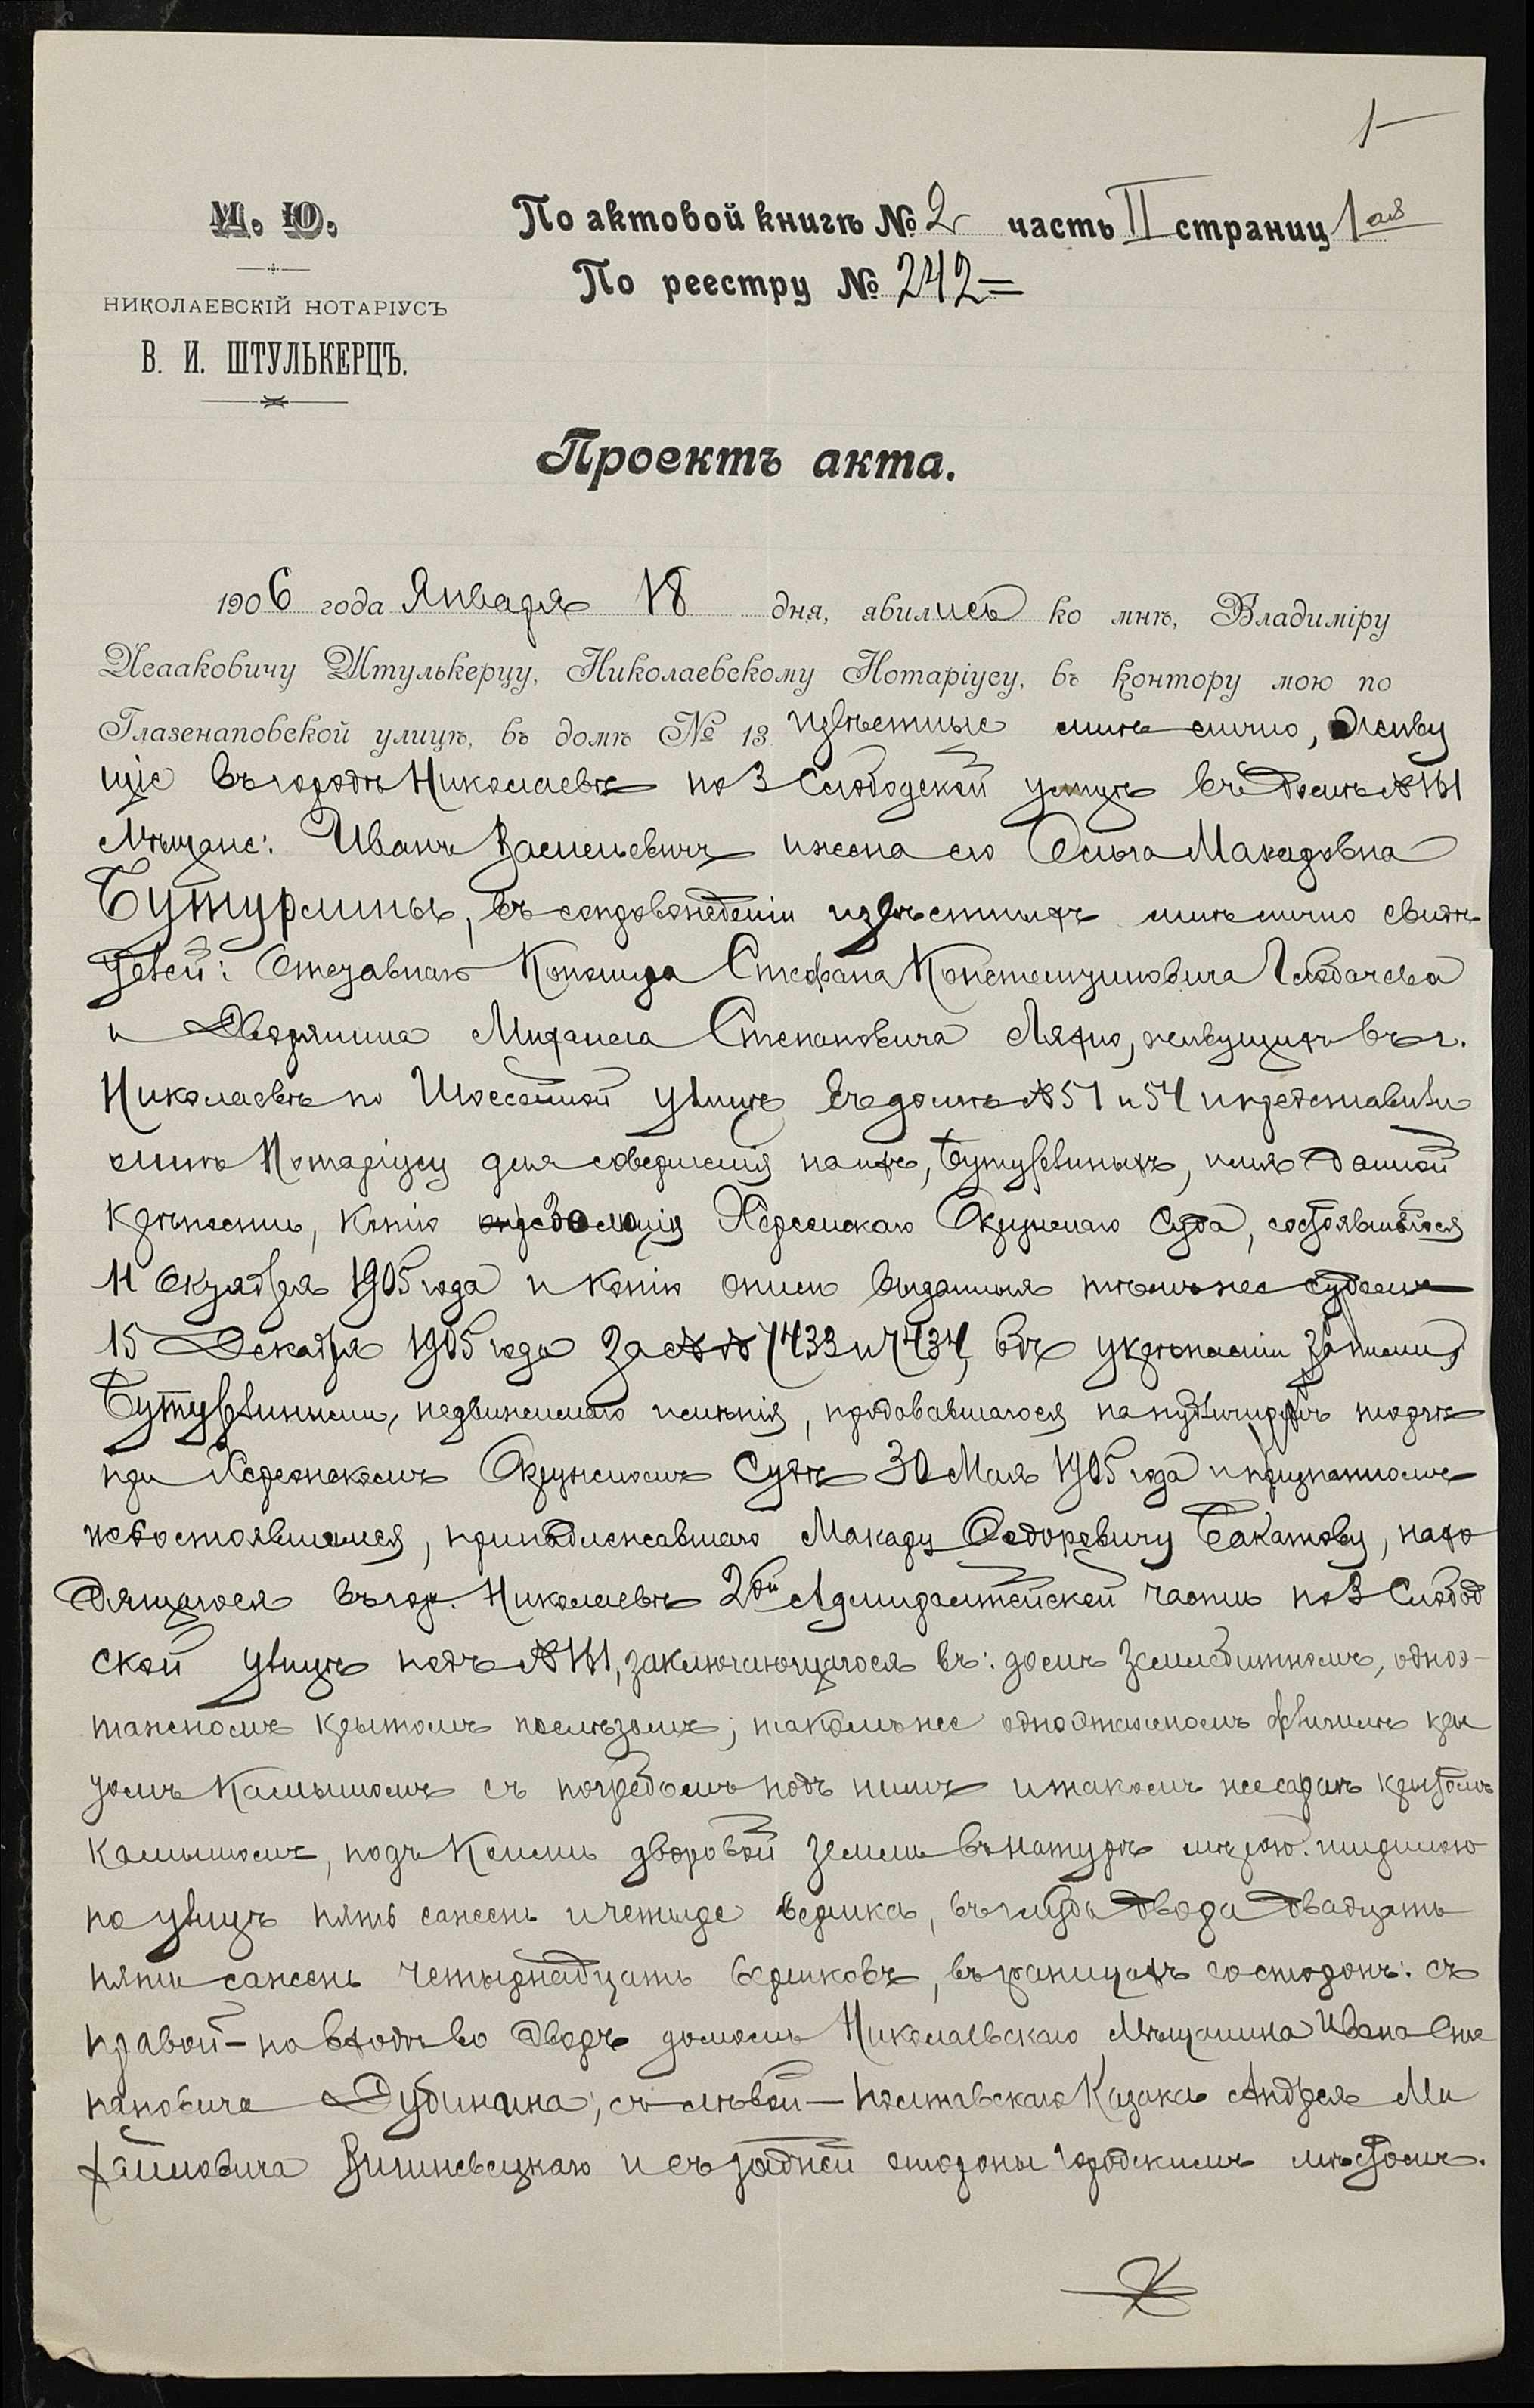 1
М. Ю.
НИКОЛАЕВСКІЙ НОТАРІУСЪ
В. И. ШТУЛЬКЕРЦЪ.
По актовой книгѣ № 2 часть II страниц 1ая
По реестру № 242
Проектъ акта.
1906 года Января 18 дня, явились ко мнѣ, Владиміру
Исааковичу Штулькерцу, Николаевскому Нотаріусу, въ контору мою по
Глазенаповской улицѣ, въ домѣ № 13 извѣстные мнѣ лично, живу
щіе въ городѣ Николаевѣ по 3 Слободской улицѣ въ домѣ №
мѣщане: Иванъ Васильевичъ и жена его Ольга Макаровна
Бутурлины, въ сопровожденіи извѣстныхъ мнѣ лично свидѣ
телей: Отставнаго Стефана Константиновича
и Дворянина Михаила Степановича Ляхно, живущихъ въ г.
Николаевѣ по Шоссейной улицѣ въ домѣ № 51 и 54 и представили
мнѣ Нотаріусу для совершенія на ихъ, Бутурлиныхъ, имя данной
крѣпости, копію Херсонскаго Окружнаго Суда, состоявшагося
11 Октября 1905 года и копію описи выданныя тѣмъ же судомъ
15 Декабря 1905 года за №№ 7433 и 7434, объ укрѣпленіи за ними,
Бутурлиными, недвижимаго имѣнія, продававшагося на публичномъ торгѣ
при Херсонскомъ Окружномъ Судѣ 30 Мая 1905 года и признанномъ
несостоявшимся, принадлежавшаго Макару Федоровичу Бакатову, нахо
дящагося въ гор. Николаевѣ 2ой Адмиралтейской части по 3 Слобод
ской улицѣ подъ №, заключающагося въ: домѣ землебитномъ, одноэ-
тажномъ крытомъ желѣзомъ; такомъ же одноэтажномъ флигелѣ кры
томъ камышомъ съ погребомъ подъ нимъ и такомъ же сараѣ крытомъ
камышомъ, подъ коими дворовой земли въ натурѣ мѣрою: шириною
по улицѣ пять сажень и четыре вершка, въ глубь двора двадцать
пять сажень четырнадцать вершковъ, въ границахъ со сторонъ: съ
правой – по входѣ во дворъ домомъ Николаевскаго Мѣщанина Ивана Сте
пановича Дубинина, съ лѣвой – Полтавскаго Казака Андрея Ми
хайловича Вишневецкаго и съ задней стороны городскимъ мѣстомъ.